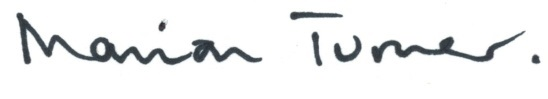 Marion Turner.